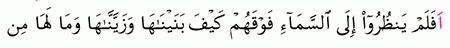 أَفَلَمْ يَنظُرُوٓا۟ إِلَى السَّمَآءِ فَوْقَهُمْ كَيْفَ بَنَيْنَـٰهَا وَزَيَّنَّـٰهَا وَمَا لَهَا مِن